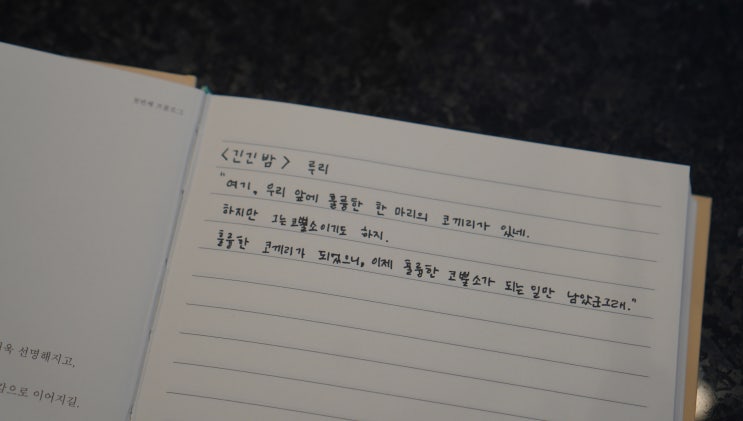 <긴긴밤> 루리
"여기, 우리 앞에 훌륭한 한 마리의 코끼리가 있네.
하지만 그는 코뿔소이기도 하지.
훌륭한 코끼리가 되었으니, 이제 훌륭한 코뿔소가 되는 일만 남았군그래."
선명해지고,
이어지길.